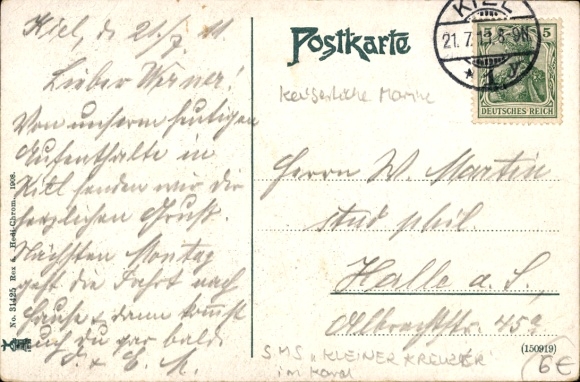 Kiel, d 21/7. 11.
Lieber Werner!
Von unserm heutigen
Aufenthalte in
Kiel senden wir die
herzlichen Gruß.
Nächsten Montag
geht die Fahrt nach
Hause & dann kommst
auch du gar bald.
J. & E. M.
No. 31425 Rex & 1908.
Postkarte
KIEL
21.7.11.8-9N
* 1 y
5
DEUTSCHES REICH
Kaiserliche Marine
Herrn W. Martin
stud phil.
Halle a. S.
Albrechtstr. 45a
(150919)
SMS "KLEINER KREUZER"
im Kanal
6€